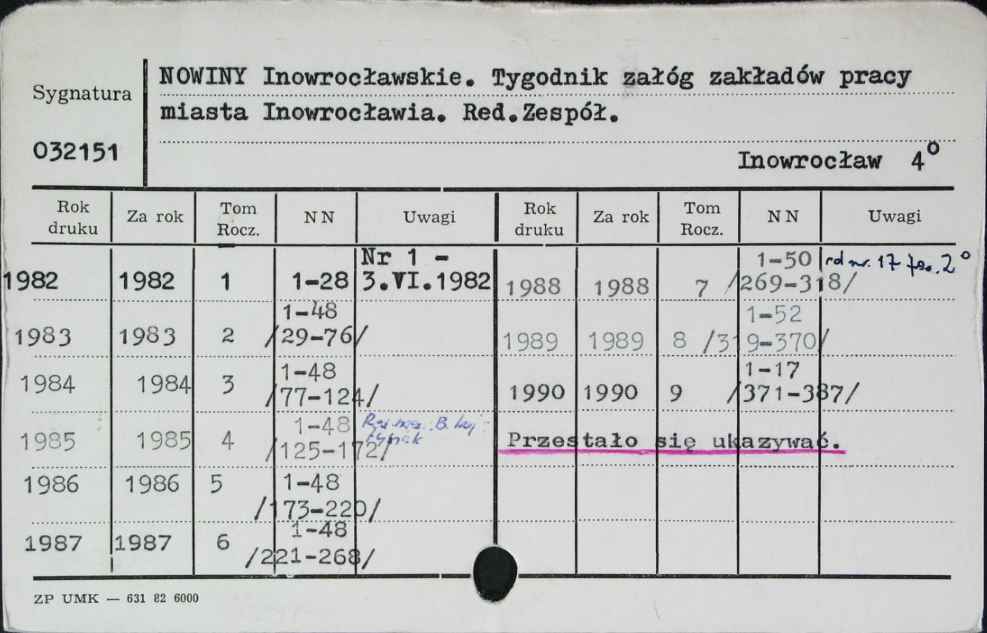 NOWINY Inowrocławskie. Tygodnik załóg zakładów pracy
Sygnatura
miasta Inowrocławia. Red.Zespół.
032151
Inowrocław 4°
Rok druku Za rok Tom Rocz. NN Uwagi Rok druku Za rok Tom Rocz. NN Uwagi
1982 1982 1 1-28 Nr 1 - 3.VI.1982
1983 1983 2 1-48 /29-76/
1984 1984 3 1-48 /77-124/
1985 1985 4 1-48 /125-172/
1986 1986 5 1-48 /173-220/
1987 1987 6 1-48 /221-268/
1988 1988 7 1-50 /269-318/ od nr. 17 2°
1989 1989 8 1-52 /319-370/
1990 1990 9 1-17 /371-387/
Przestało się ukazywać.
ZP UMK — 631 82 6000